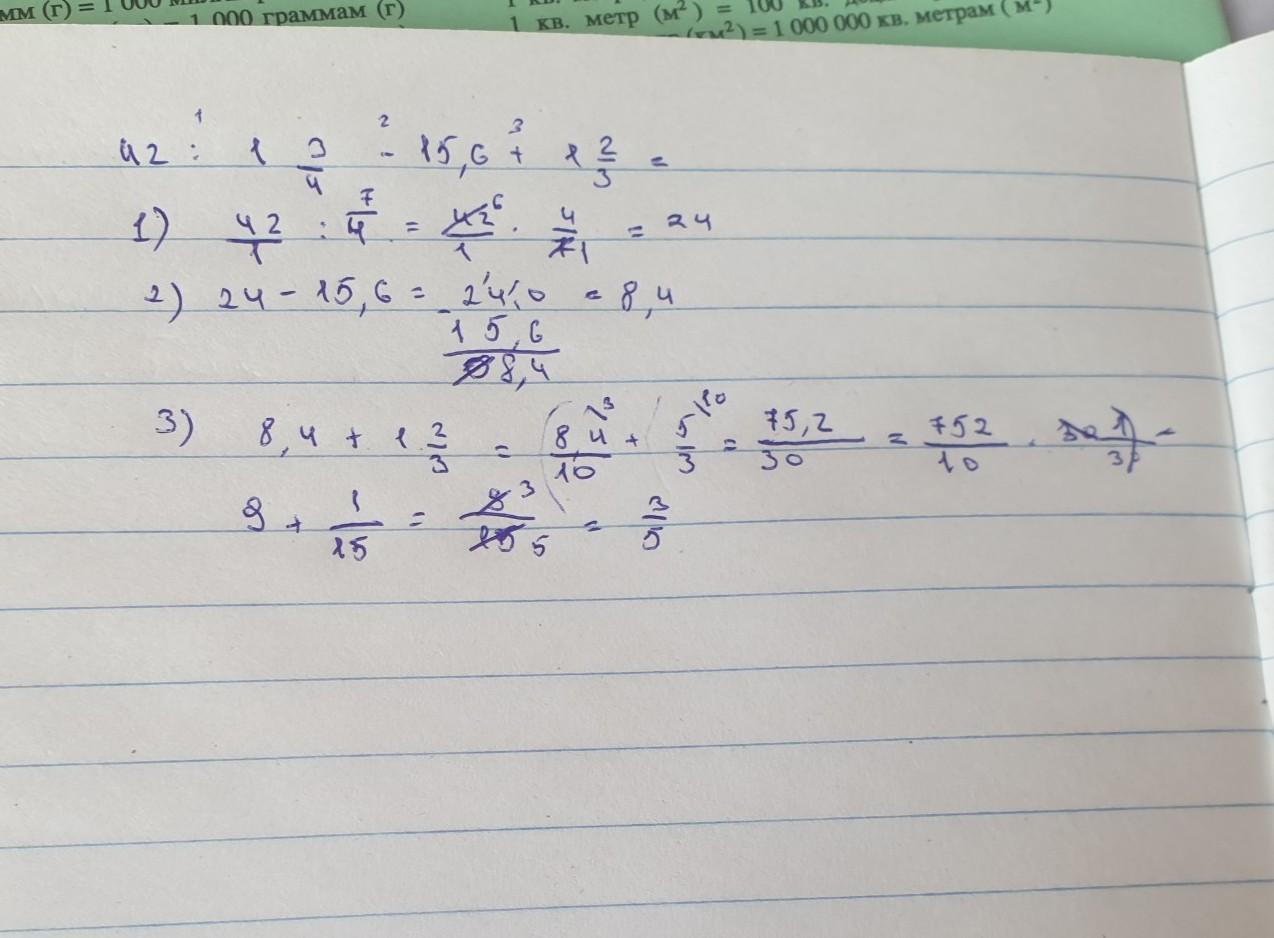 мм (г) = 1 000
= 1 000 граммам (г)
1 кв. метр (м²) = 100 кв.
(км²) = 1 000 000 кв. метрам (м²)
42 : 1 3/4 - 15,6 + 1 2/3 =
1) 42/1 : 7/4 = 42/1 6 · 4/7 1 = 24
2) 24 - 15,6 = 24,0 = 8,4
- 15,6
08,4
3) 8,4 + 1 2/3 = (84/10 \3 + 5/3 \10 = 75,2/30 = 752/10 · 30 1/3 =
9 + 1/15 = 9/15 3 5 = 3/5